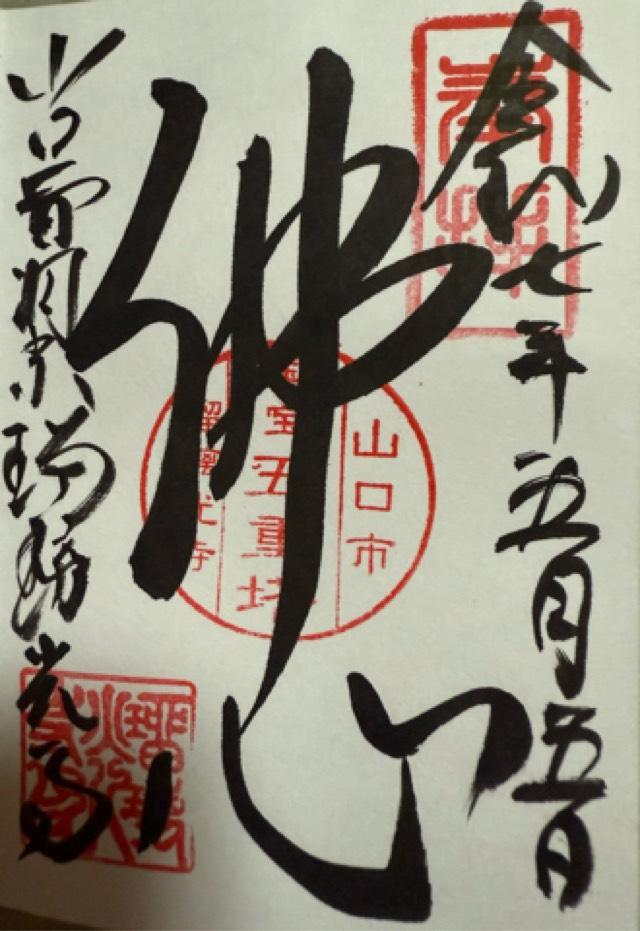 奉拝
令和七年五月五日
佛心
山口市
国宝五重塔
瑠璃光寺
山口曹洞宗瑠璃光寺